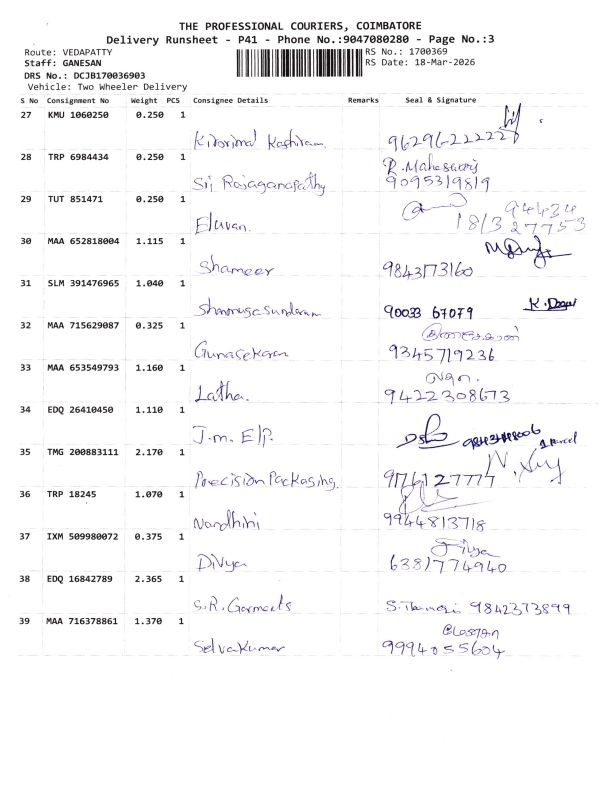 THE PROFESSIONAL COURIERS, COIMBATORE
Delivery Runsheet - P41 - Phone No.:9047080280 - Page No.:3
Route: VEDAPATTY
RS No.: 1700369
Staff: GANESAN
RS Date: 18-Mar-2026
DRS No.: DCJB170036903
Vehicle: Two Wheeler Delivery
S No Consignment No Weight PCS Consignee Details Remarks Seal & Signature
27 KMU 1060250 0.250 1
96296-222228
28 TRP 6984434 0.250 1
R. Maheswari
Sri Rajaganapathy 9095319819
29 TUT 851471 0.250 1
94434
Eluvan. 18/3 27753
30 MAA 652818004 1.115 1
Shameer 9843173160
31 SLM 391476965 1.040 1
Shanmugasundaram 90033 67079
32 MAA 715629087 0.325 1
குணசேகரன்
Gunasekaran 9345719236
33 MAA 653549793 1.160 1
லதா.
Latha. 9422308673
34 EDQ 26410450 1.110 1
J.m. E/P.
1 Parcel
35 TMG 200883111 2.170 1
Precision Packasing. 9176127777
36 TRP 18245 1.070 1
Nandhini 9944813718
37 IXM 509980072 0.375 1
Divya
Divya 6381774940
38 EDQ 16842789 2.365 1
S.R. Garments 9842373899
39 MAA 716378861 1.370 1
Selvakumar 9994055604